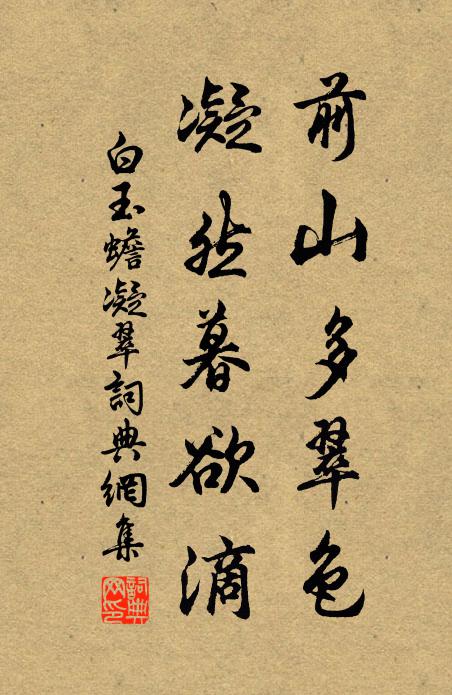 前山多翠色
凝然暮欲滴
白玉蟾凝翠詞典網集
詞典網印